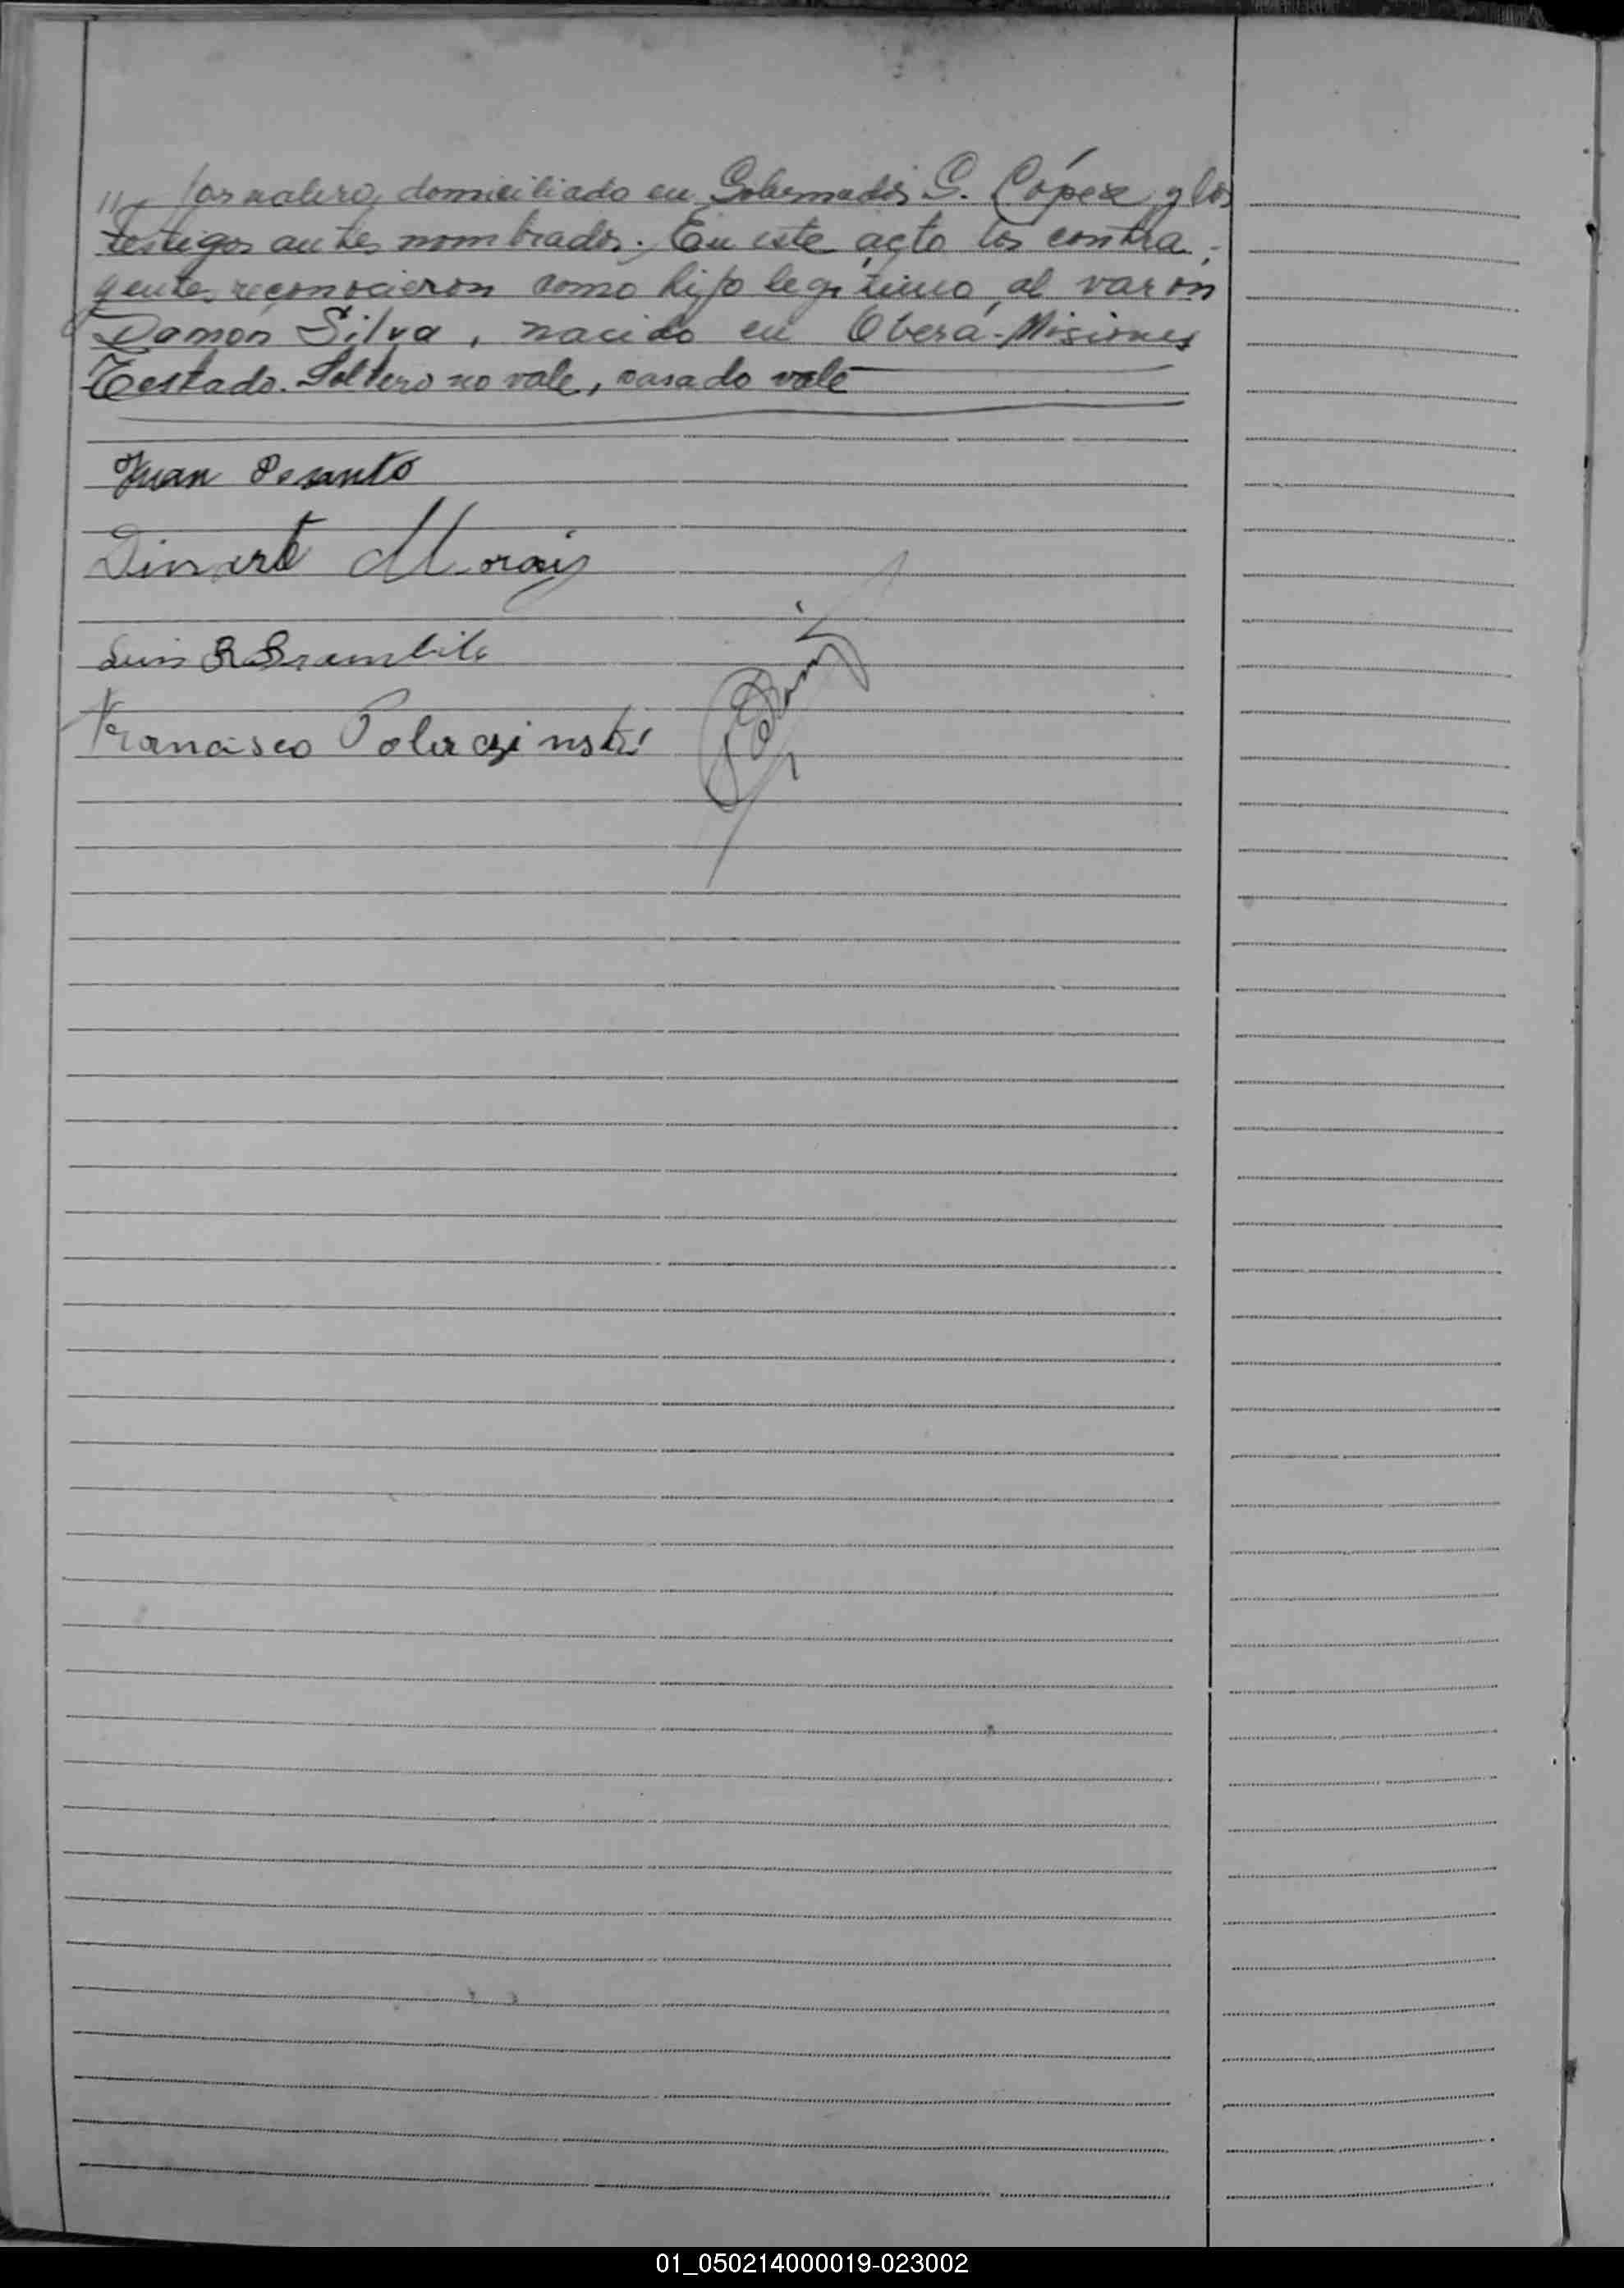 " jornalero, domiciliado en Gobernador G. López y los
testigos antes nombrados. En este acto los contra-
yentes reconocieron como hijo legítimo al varón
Damón Silva, nacido en Oberá-Misiones
Testado. Soltero no vale, casado vale
Juan Desanto
Dinarte Morais
Luis R Brambila
Francisco Polaczinski
01_050214000019-023002